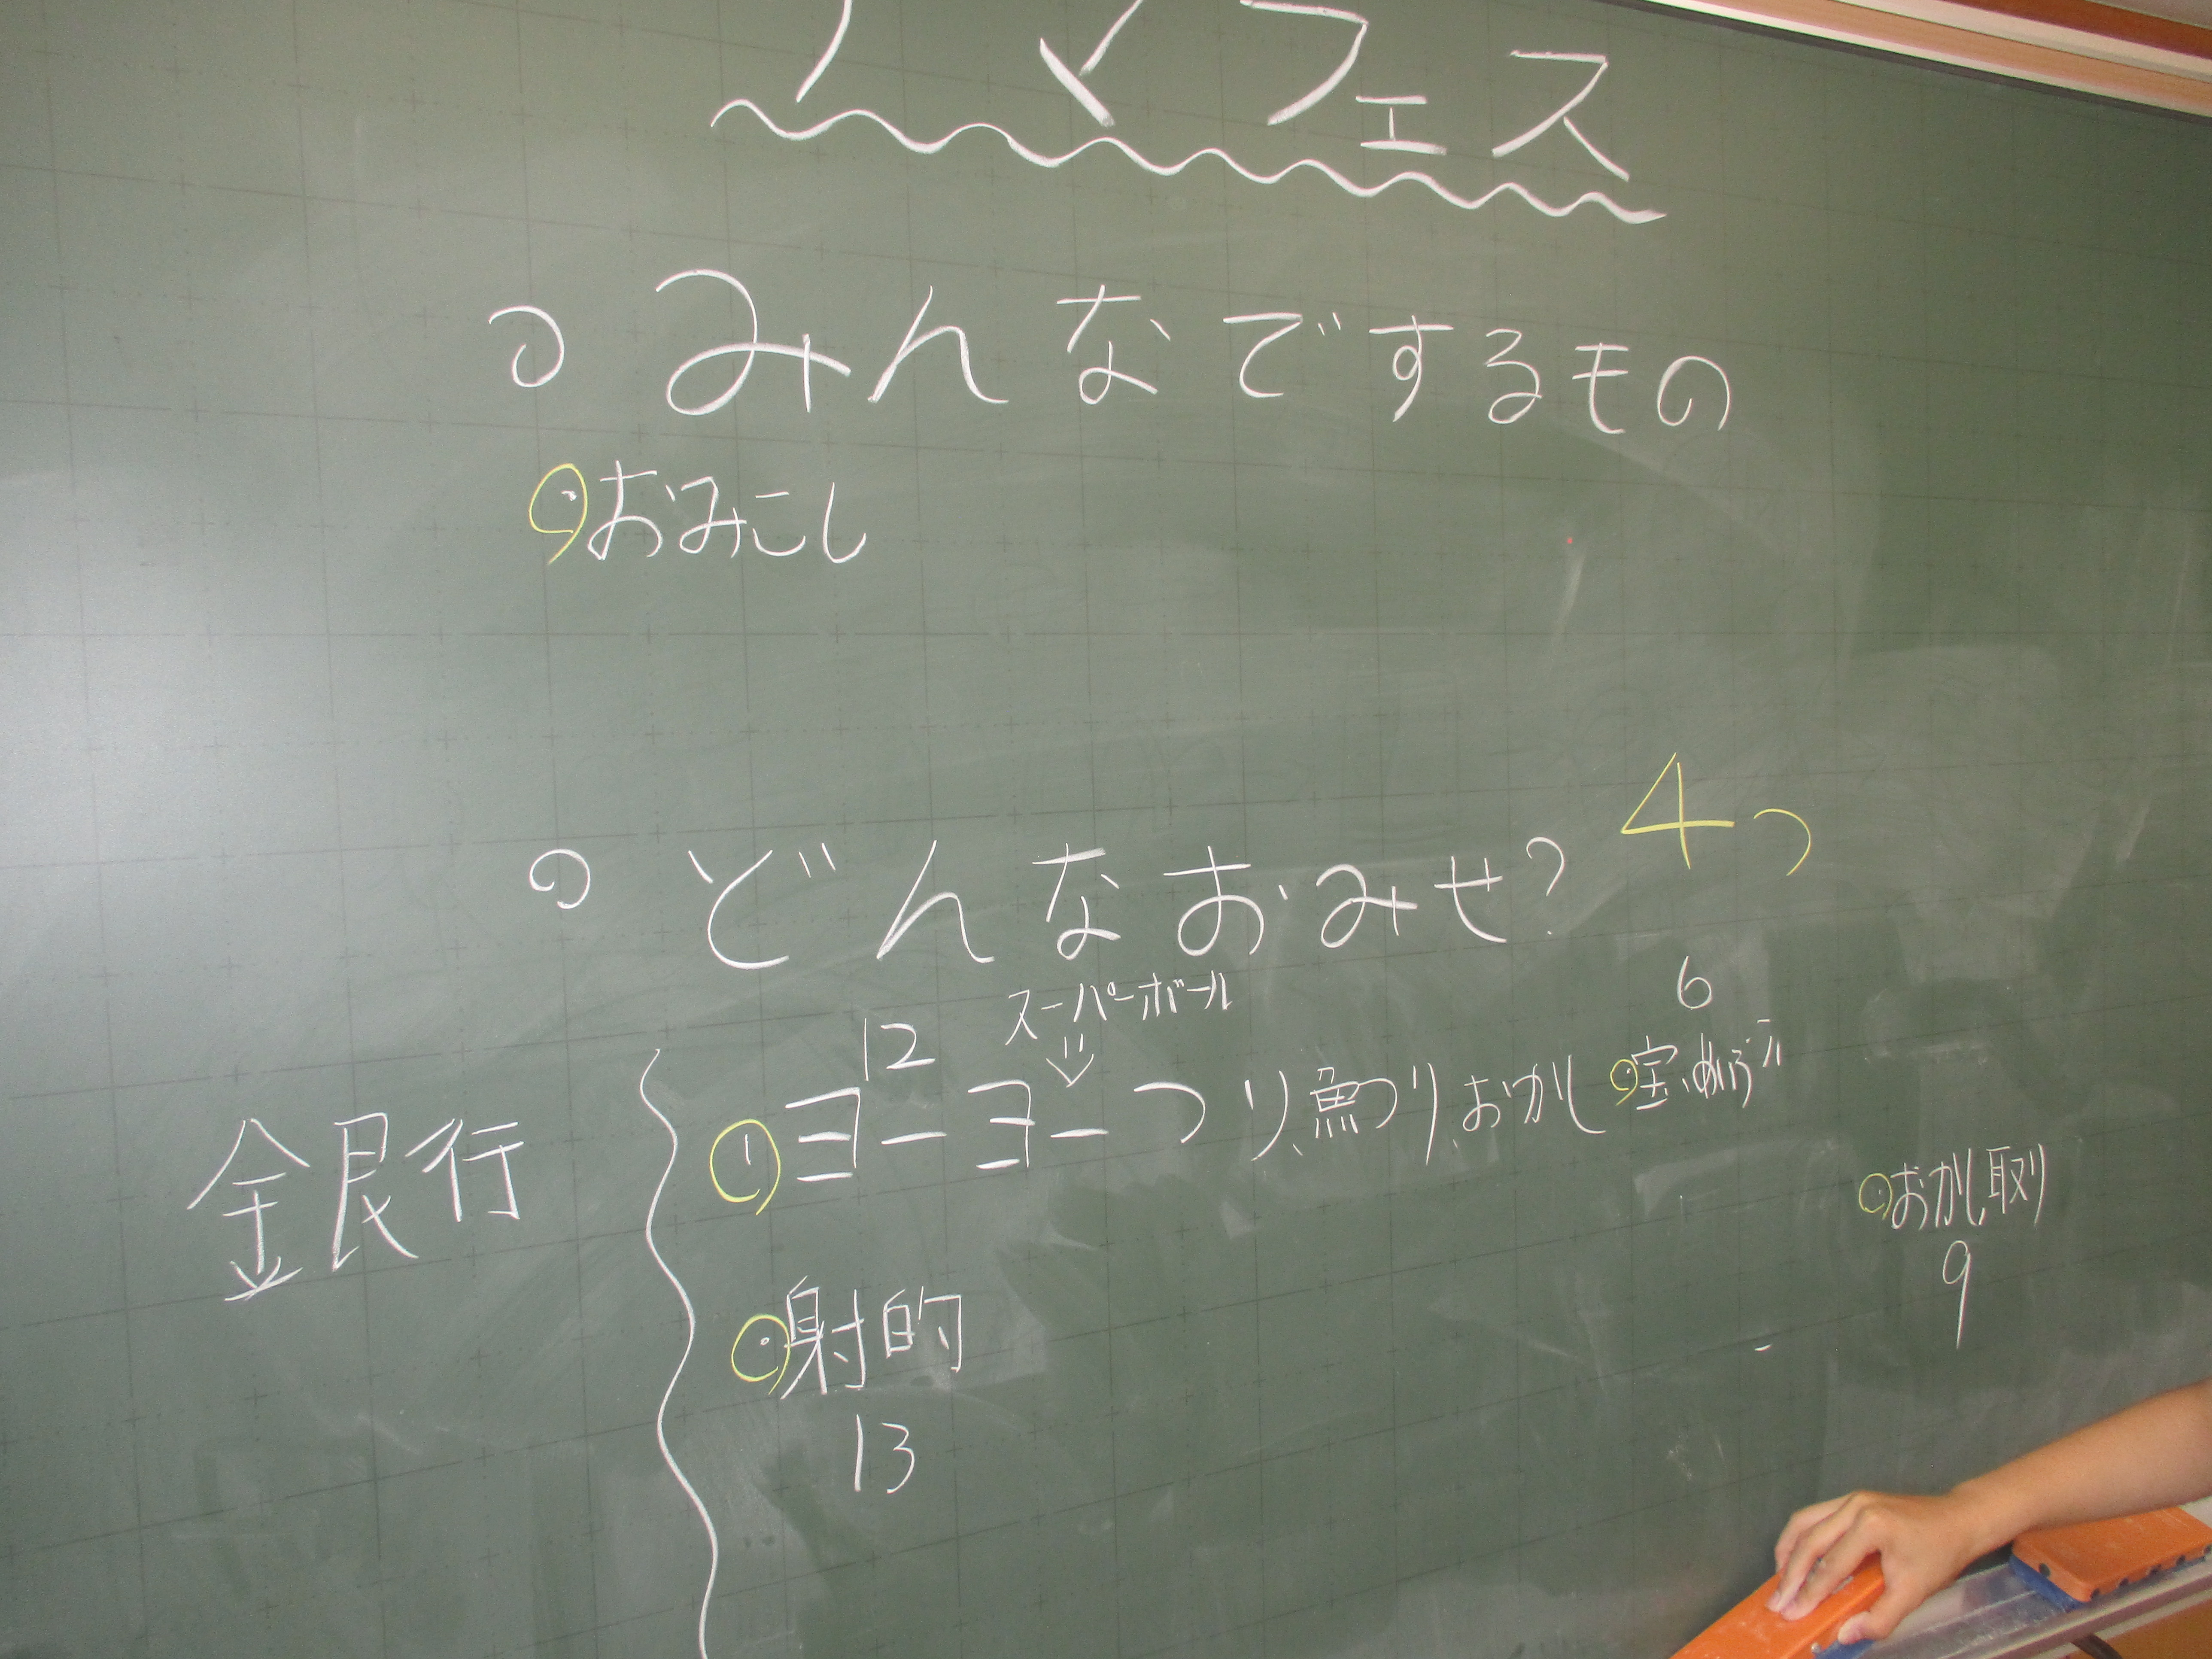 フェス
みんなでするもの
おみこし
どんなおみせ? 4つ
スーパーボール
12
6
ヨーヨーつり、魚つり、おかし
宝
おかし取り
9
銀行
射的
13